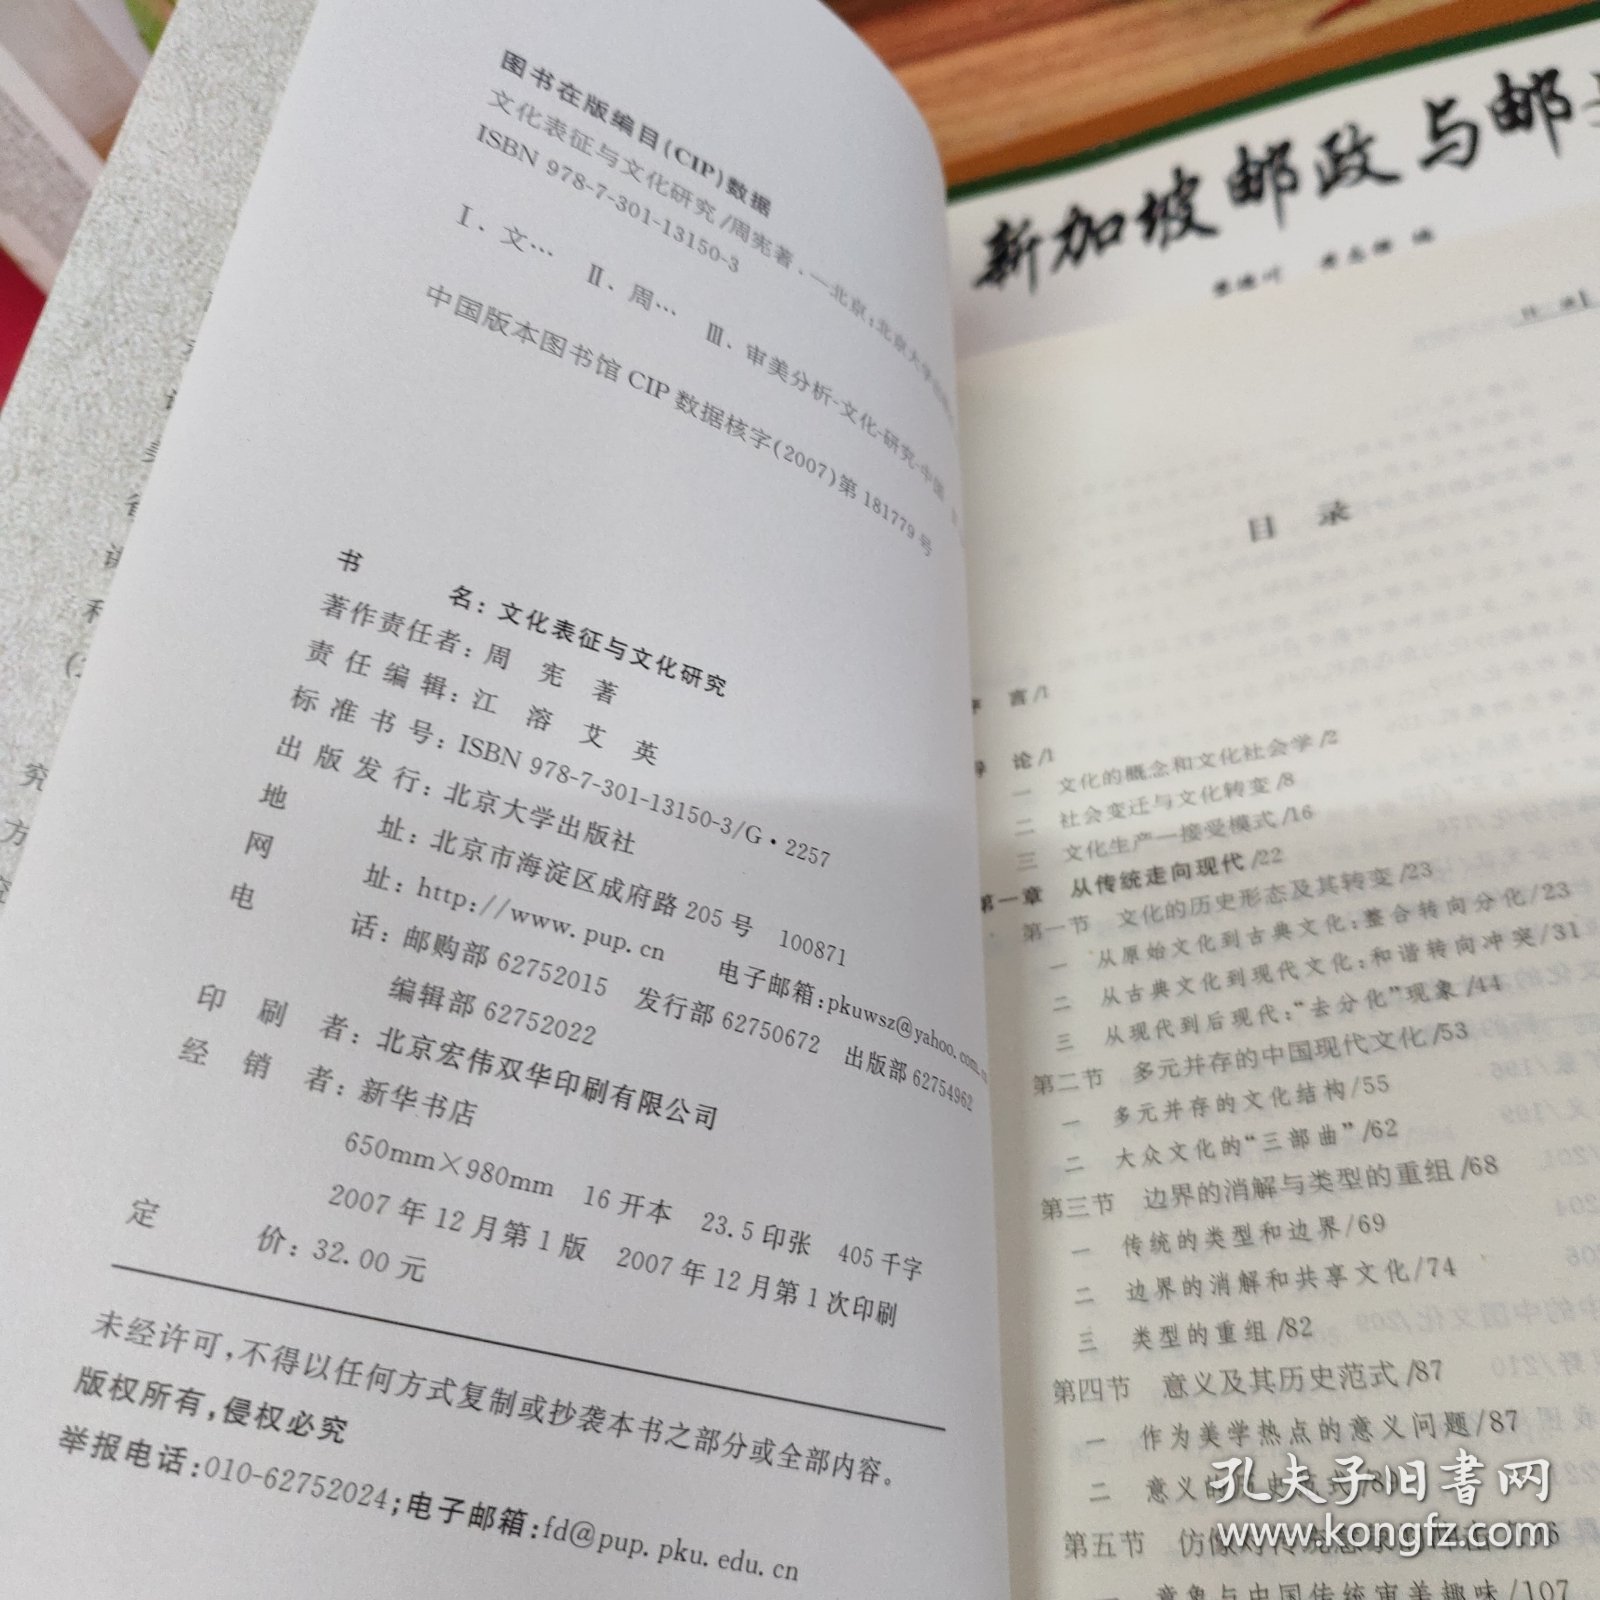 图书在版编目(CIP)数据
文化表征与文化研究/周宪著.—北京:北京大学
ISBN 978-7-301-13150-3
Ⅰ.文… Ⅱ.周… Ⅲ.审美分析-文化-研究-中国
中国版本图书馆CIP数据核字(2007)第181779号
书 名:文化表征与文化研究
著作责任者:周 宪 著
责任编辑:江 溶 艾 英
标准书号:ISBN 978-7-301-13150-3/G·2257
出版发行:北京大学出版社
地 址:北京市海淀区成府路205号 100871
网 址:http://www.pup.cn 电子邮箱:pkuwsz@yahoo.com.c
电 话:邮购部62752015 发行部62750672 出版部62754962
编辑部62752022
印 刷 者:北京宏伟双华印刷有限公司
经 销 者:新华书店
650mm×980mm 16开本 23.5印张 405千字
2007年12月第1版 2007年12月第1次印刷
定 价:32.00元
未经许可,不得以任何方式复制或抄袭本书之部分或全部内容。
版权所有,侵权必究
举报电话:010-62752024;电子邮箱:fd@pup.pku.edu.cn
究
方
新加坡邮政与邮
目 录
言/1
论/1
一 文化的概念和文化社会学/2
二 社会变迁与文化转变/8
三 文化生产—接受模式/16
第一章 从传统走向现代/22
第一节 文化的历史形态及其转变/23
一 从原始文化到古典文化:整合转向分化/23
二 从古典文化到现代文化:和谐转向冲突/31
三 从现代到后现代:“去分化”现象/44
第二节 多元并存的中国现代文化/53
一 多元并存的文化结构/55
二 大众文化的“三部曲”/62
第三节 边界的消解与类型的重组/68
一 传统的类型和边界/69
二 边界的消解和共享文化/74
三 类型的重组/82
第四节 意义及其历史范式/87
一 作为美学热点的意义问题/87
二 意义的 /89
第五节 仿像对传统
一 意象与中国传统审美趣味/107
孔夫子旧书网
www.kongfz.com